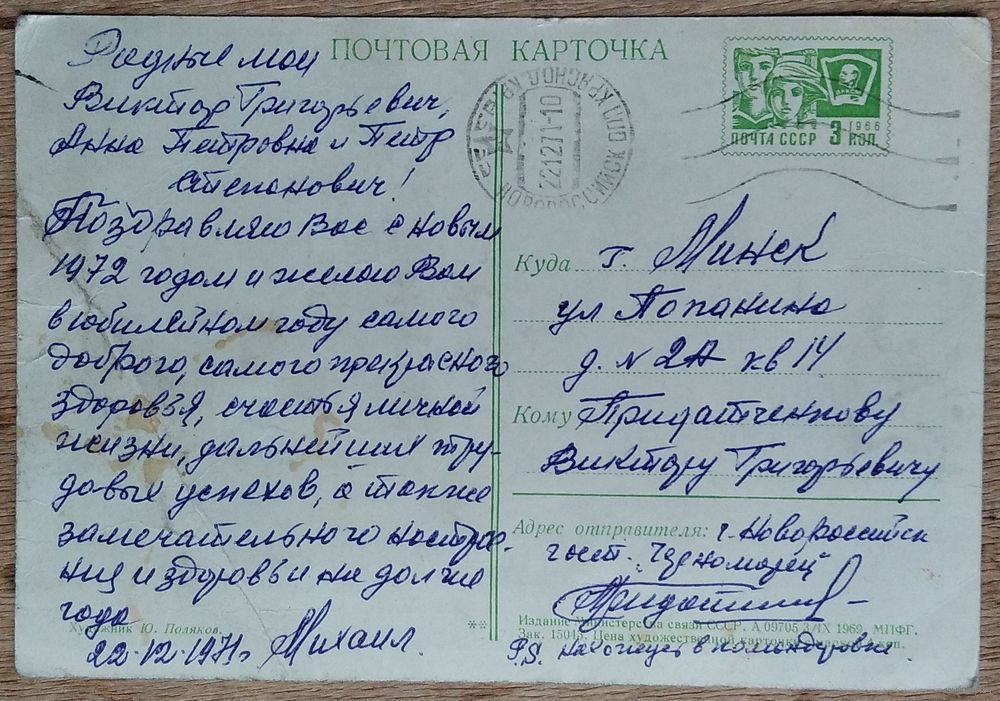 ПОЧТОВАЯ КАРТОЧКА
Родные мои
Виктор Григорьевич,
Анна Петровна и Петр
Степанович!
Поздравляю Вас с новым
1972 годом и желаю Вам
в юбилейном году самого
доброго, самого прекрасного
здоровья, счастья личной
жизни, дальнейших тру-
довых успехов, а также
замечательного настрое-
ния и здоровья на долгие
года
22-12-1971г Михаил
Художник Ю. Поляков.
**
НОВОРОССИЙСК КРАСНОД. КР.
22 12 71-10
ПОЧТА СССР 3 КОП.
1966
ВЛКСМ
Куда г. Минск
ул Попанина
д. N 2А кв 14
Кому Придатченкову
Виктору Григорьевичу
Адрес отправителя: г. Новороссийск
гост. Черноморец
Издание Министерства связи СССР. А 09705 /IX 1969 МПФГ.
Зак. 15045. Цена художественной карточки с маркой 4 коп.
P.S. нахожусь в командировке.